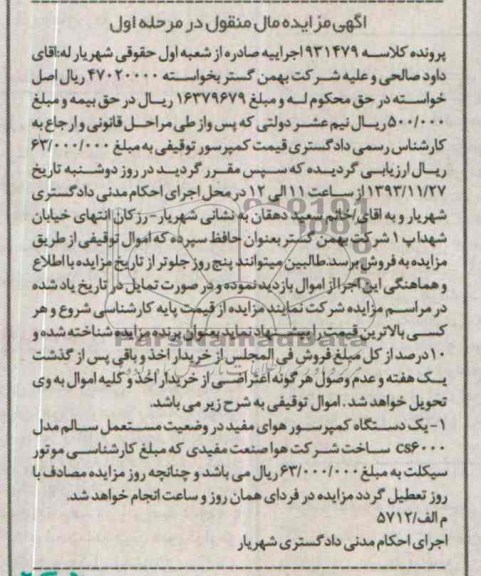 آگهی مزایده مال منقول در مرحله اول
پرونده کلاسه ۹۳۱۴۷۹ اجراییه صادره از شعبه اول حقوقی شهریار له: آقای
داود صالحی و علیه شرکت بهمن گستر بخواسته ۴۷۰۲۰۰۰۰ ریال اصل
خواسته در حق محکوم له و مبلغ ۱۶۳۷۹۶۷۹ ریال در حق بیمه و مبلغ
۵۰۰/۰۰۰ ریال نیم عشر دولتی که پس واز طی مراحل قانونی و ارجاع به
کارشناس رسمی دادگستری قیمت کمپرسور توقیفی به مبلغ ۶۳/۰۰۰/۰۰۰
ریال ارزیابی گردیده که سپس مقرر گردید در روز دوشنبه تاریخ
۱۳۹۳/۱۱/۲۷ از ساعت ۱۱ الی ۱۲ در محل اجرای احکام مدنی دادگستری
شهریار و به آقای/خانم سعید دهقان به نشانی شهریار - رزکان انتهای خیابان
شهداپ ۱ شرکت بهمن گستر بعنوان حافظ سپرده که اموال توقیفی از طریق
مزایده به فروش برسد. طالبین میتوانند پنج روز جلوتر از تاریخ مزایده با اطلاع
و هماهنگی این اجرا از اموال بازدید نموده و در صورت تمایل در تاریخ یاد شده
در مراسم مزایده شرکت نمایند مزایده از قیمت پایه کارشناسی شروع و هر
کسی بالاترین قیمت را پیشنهاد نماید بعنوان برنده مزایده شناخته شده و
۱۰ درصد از کل مبلغ فروش فی المجلس از خریدار اخذ و باقی پس از گذشت
یک هفته و عدم وصول هر گونه اعتراضی از خریدار اخذ و کلیه اموال به وی
تحویل خواهد شد. اموال توقیفی به شرح زیر می باشد.
۱- یک دستگاه کمپرسور هوای مفید در وضعیت مستعمل سالم مدل
cs۶۰۰۰ ساخت شرکت هوا صنعت مفیدی که مبلغ کارشناسی موتور
سیکلت به مبلغ ۶۳/۰۰۰/۰۰۰ ریال می باشد و چنانچه روز مزایده مصادف با
روز تعطیل گردد مزایده در فردای همان روز و ساعت انجام خواهد شد.
م الف/۵۷۱۲
اجرای احکام مدنی دادگستری شهریار
ParsNamadData